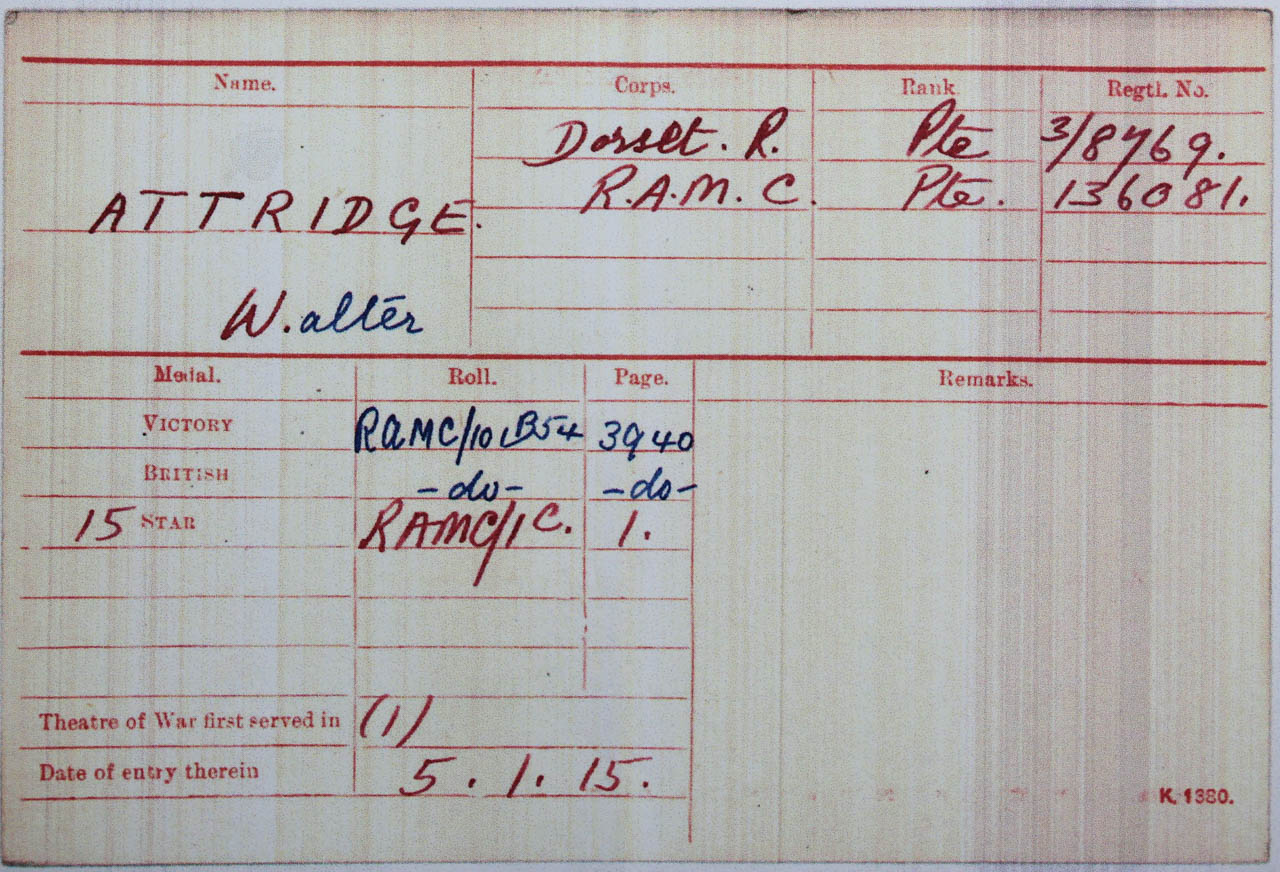 Name. Corps. Rank. Regtl. No.
Dorset. R. Pte 3/8769.
ATTRIDGE. R.A.M.C. Pte. 136081.
W.alter
Medal. Roll. Page. Remarks.
VICTORY RAMC/101B54 3940
BRITISH -do- -do-
15 STAR RAMC/1C. 1.
Theatre of War first served in (1)
Date of entry therein 5.1.15.
K. 1380.